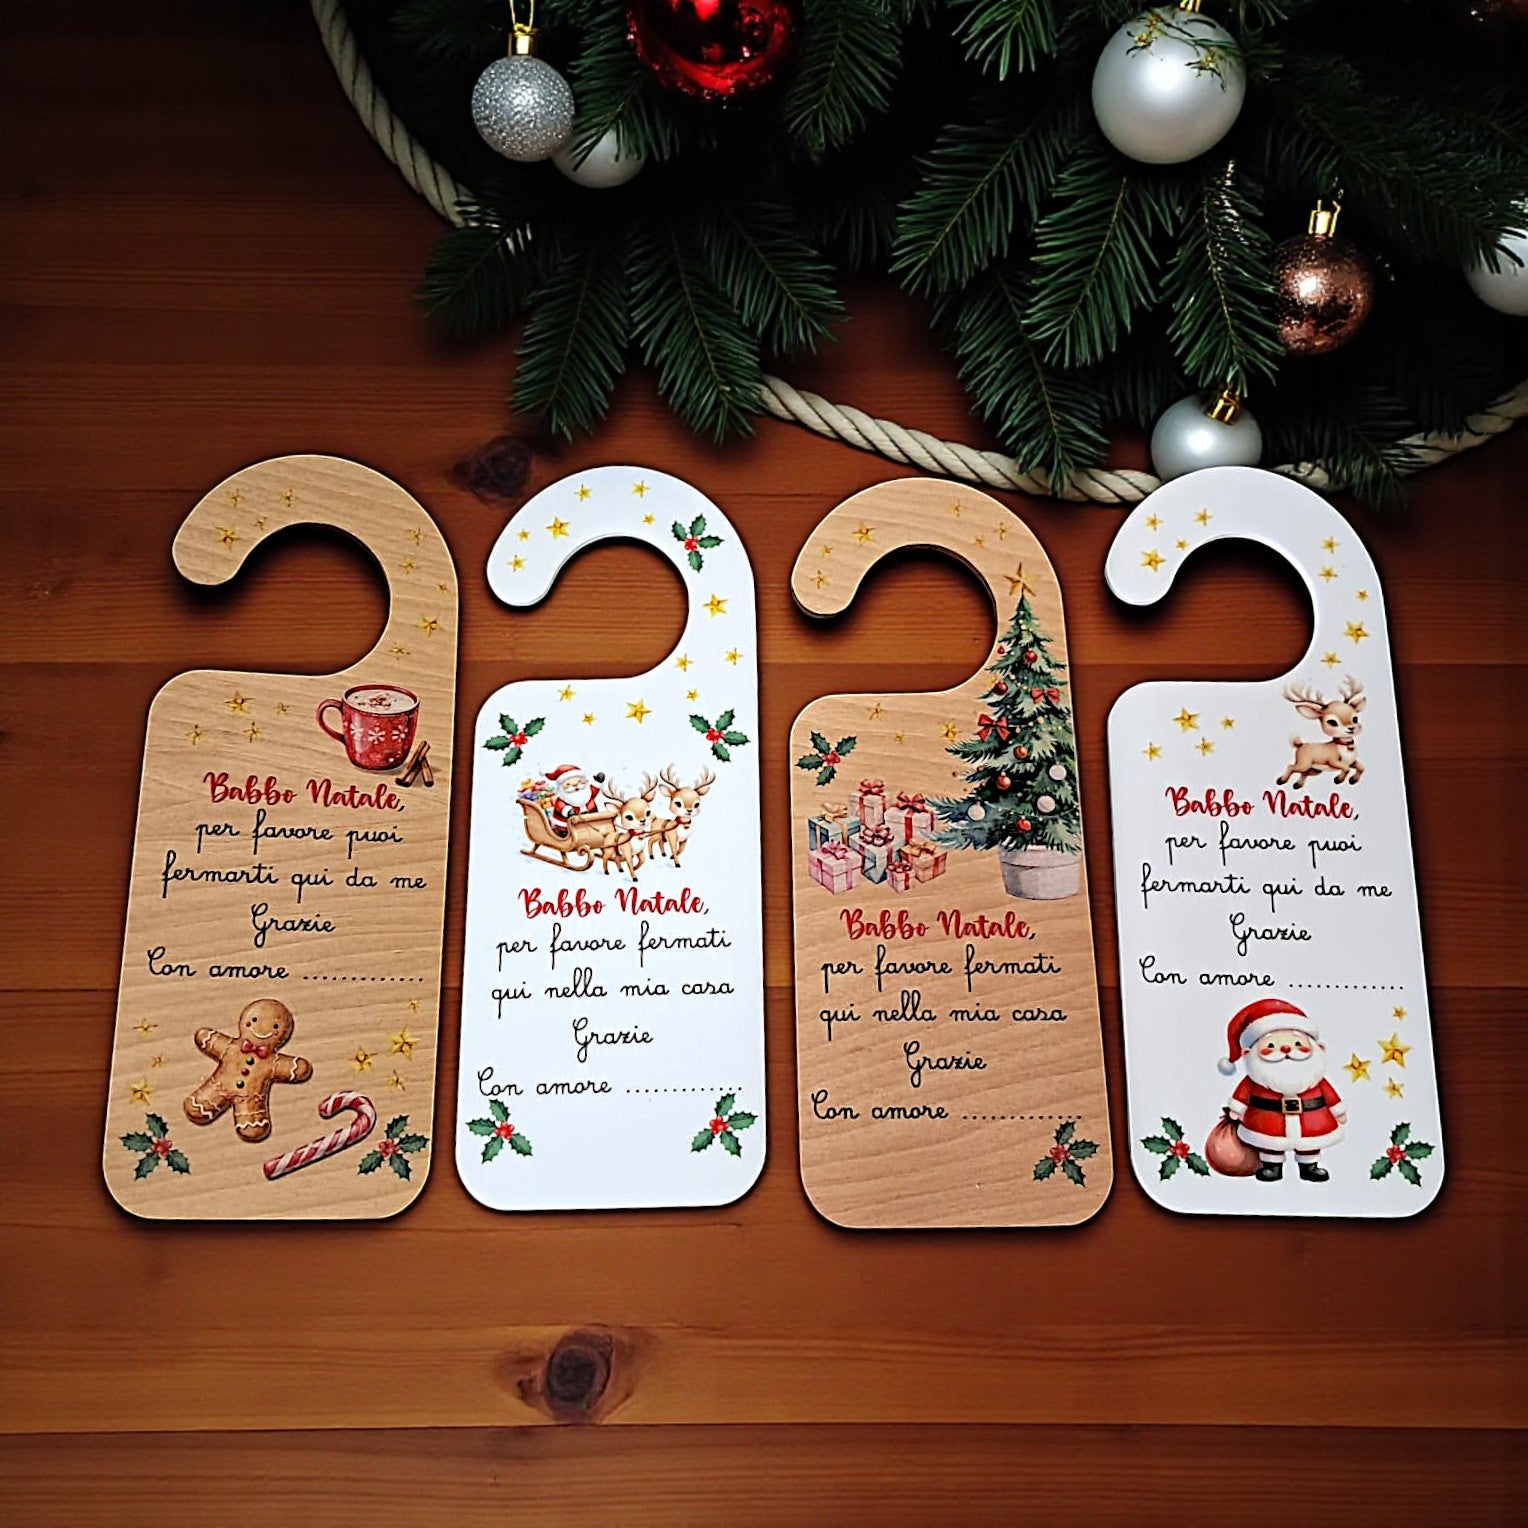 Babbo Natale,
per favore puoi
fermarti qui da me
Grazie
Con amore ..............
Babbo Natale,
per favore fermati
qui nella mia casa
Grazie
Con amore ..............
Babbo Natale,
per favore fermati
qui nella mia casa
Grazie
Con amore ..............
Babbo Natale,
per favore puoi
fermarti qui da me
Grazie
Con amore ..............